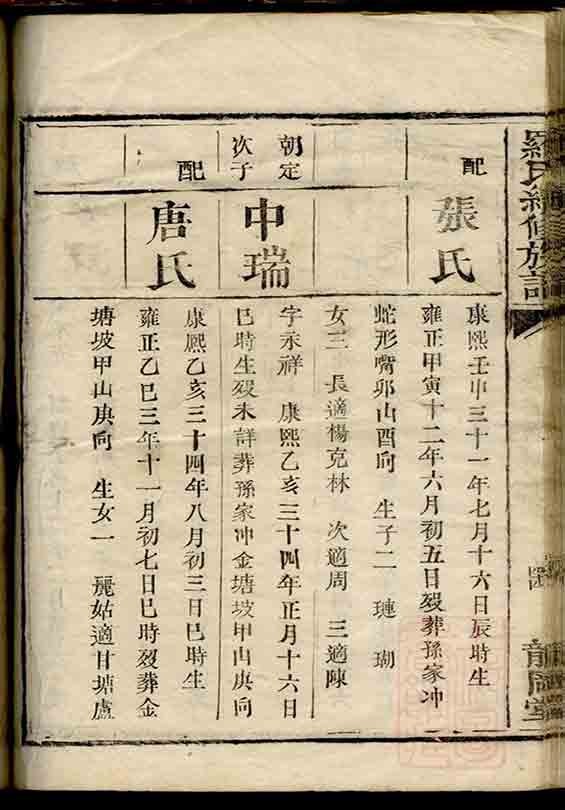 羅氏續修族譜
龍岡堂
配
張氏
康熙壬申三十一年七月十六日辰時生
雍正甲寅十二年六月初五日殁葬孫家冲
蛇形嘴卯山酉向 生子二 璉 瑚
女三 長適楊克林 次適周 三適陳
朝定
次子
中瑞
字永祥 康熙乙亥三十四年正月十六日
巳時生殁未詳葬孫家冲金塘坡甲山庚向
配
唐氏
康熙乙亥三十四年八月初三日巳時生
雍正乙巳三年十一月初七日巳時殁葬金
塘坡甲山庚向 生女一 麗姑適甘塘盧